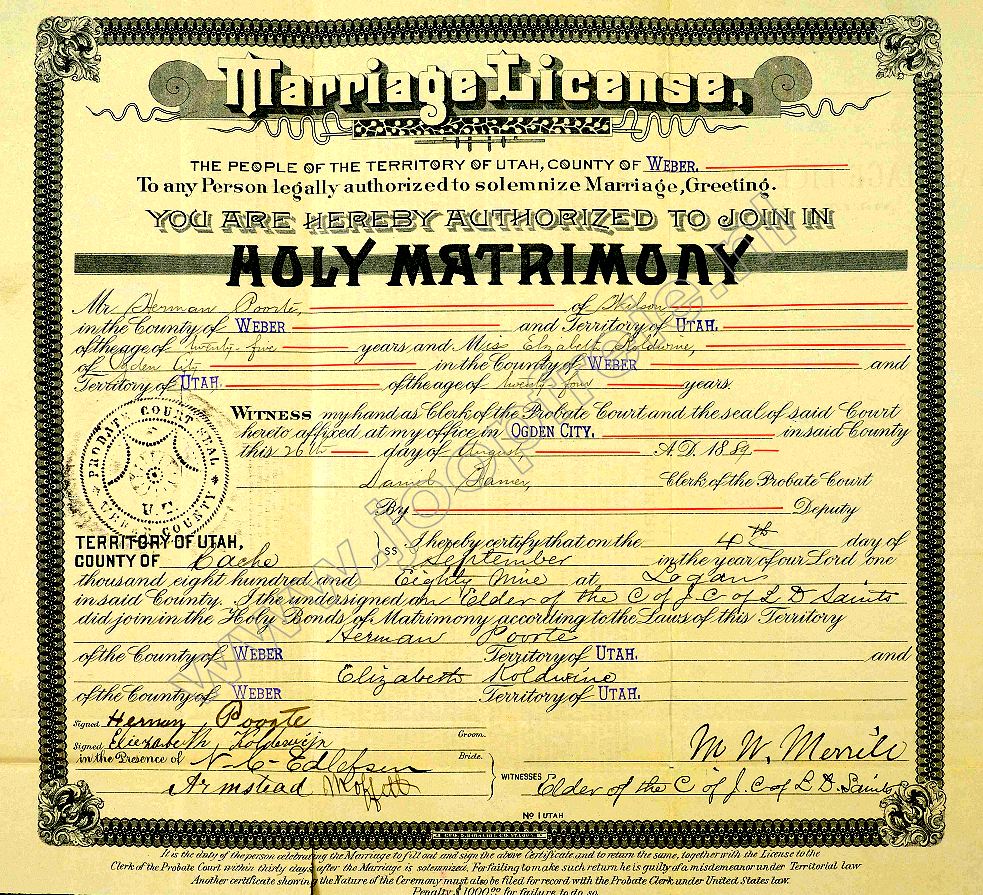 Marriage License.
THE PEOPLE OF THE TERRITORY OF UTAH, COUNTY OF WEBER.
To any Person legally authorized to solemnize Marriage, Greeting.
YOU ARE HEREBY AUTHORIZED TO JOIN IN
HOLY MATRIMONY
Mr. Herman Poorte, of Wilson
in the County of WEBER and Territory of UTAH.
of the age of twenty-five years, and Miss Elizabeth Koldwine,
of Ogden City in the County of WEBER and
Territory of UTAH of the age of twenty four years.
WITNESS my hand as Clerk of the Probate Court and the seal of said Court
hereto affixed at my office in OGDEN CITY. in said County
this 26th day of August A.D. 1889
Daniel Hamer, Clerk of the Probate Court
By Deputy
PROBATE COURT SEAL
U.T.
COUNTY
TERRITORY OF UTAH,
COUNTY OF Cache ss. I hereby certify that on the 4th day of
September in the year of our Lord one
thousand eight hundred and Eighty Nine at Logan
in said County, I the undersigned an Elder of the C of J.C of L D Saints
did join in the Holy Bonds of Matrimony according to the Laws of this Territory
Herman Poorte
of the County of WEBER Territory of UTAH. and
Elizabeth Koldwine
of the County of WEBER Territory of UTAH.
Signed Herman Poorte Groom.
Signed Elizabeth Koldewijn Bride.
in the Presence of N. C. Edlefsen
Armstead Moffett
WITNESSES
M W Merrill
Elder of the C of J.C of L D. Saints
No 1 UTAH
It is the duty of the person celebrating the Marriage to fill out and sign the above Certificate and to return the same, together with the License to the
Clerk of the Probate Court within thirty days after the Marriage is solemnized. For failing to make such return he is guilty of a misdemeanor under Territorial law
Another certificate showing the Nature of the Ceremony must also be filed for record with the Probate Clerk under United States law.
Penalty $1000.00 for failure to do so.
www.joopreine.nl